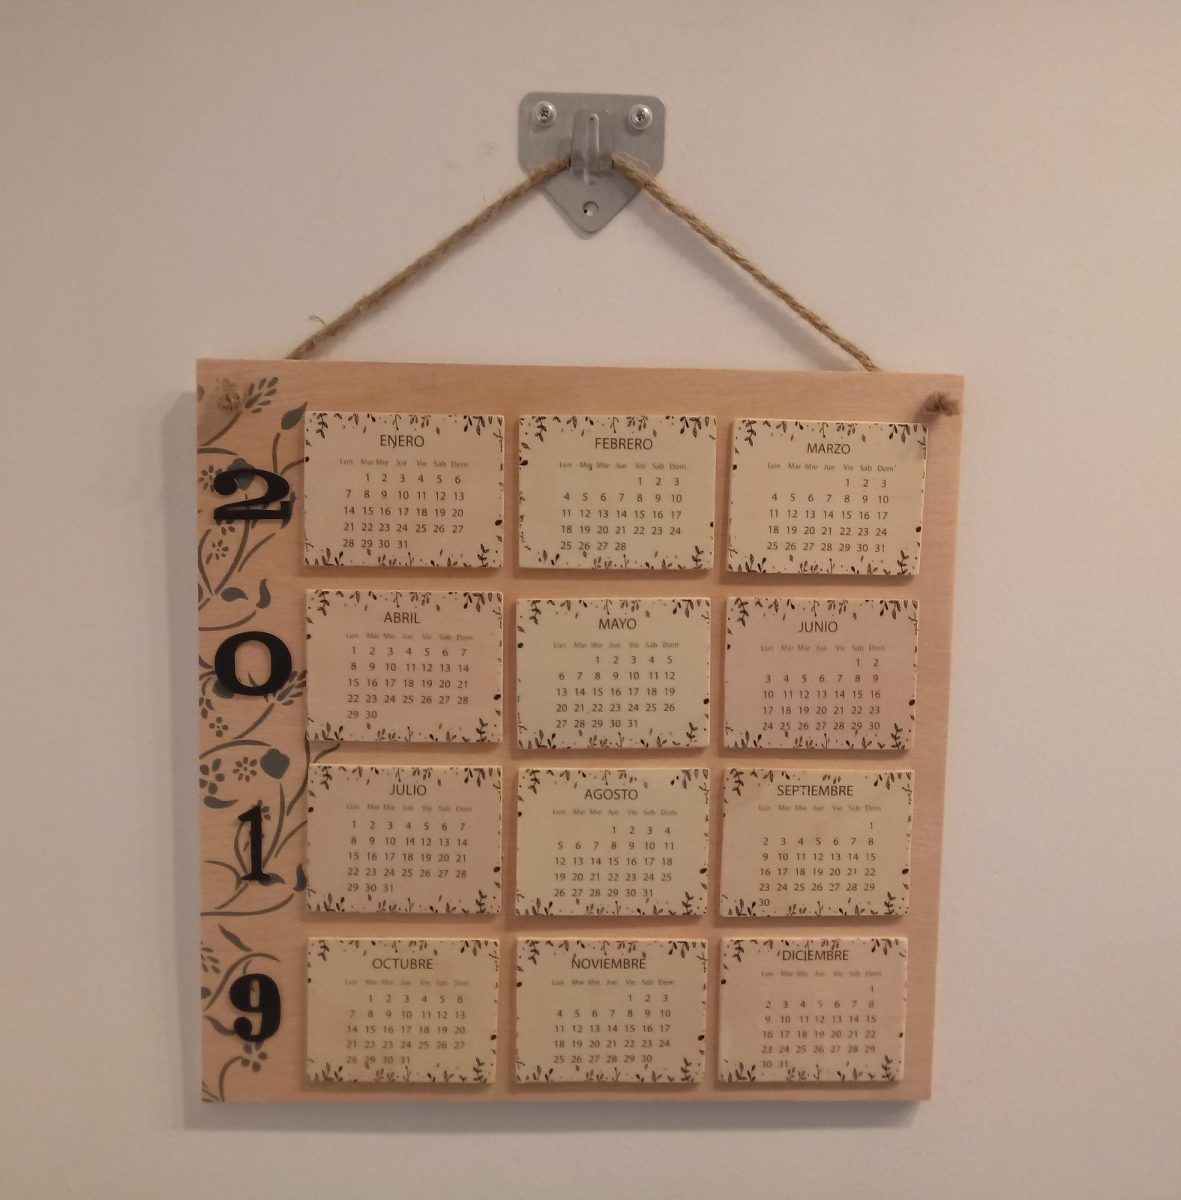 2
0
1
9
ENERO
Lun Mar Mie Jue Vie Sab Dom
1 2 3 4 5 6
7 8 9 10 11 12 13
14 15 16 17 18 19 20
21 22 23 24 25 26 27
28 29 30 31
FEBRERO
Lun Mar Mie Jue Vie Sab Dom
1 2 3
4 5 6 7 8 9 10
11 12 13 14 15 16 17
18 19 20 21 22 23 24
25 26 27 28
MARZO
Lun Mar Mie Jue Vie Sab Dom
1 2 3
4 5 6 7 8 9 10
11 12 13 14 15 16 17
18 19 20 21 22 23 24
25 26 27 28 29 30 31
ABRIL
Lun Mar Mie Jue Vie Sab Dom
1 2 3 4 5 6 7
8 9 10 11 12 13 14
15 16 17 18 19 20 21
22 23 24 25 26 27 28
29 30
MAYO
Lun Mar Mie Jue Vie Sab Dom
1 2 3 4 5
6 7 8 9 10 11 12
13 14 15 16 17 18 19
20 21 22 23 24 25 26
27 28 29 30 31
JUNIO
Lun Mar Mie Jue Vie Sab Dom
1 2
3 4 5 6 7 8 9
10 11 12 13 14 15 16
17 18 19 20 21 22 23
24 25 26 27 28 29 30
JULIO
Lun Mar Mie Jue Vie Sab Dom
1 2 3 4 5 6 7
8 9 10 11 12 13 14
15 16 17 18 19 20 21
22 23 24 25 26 27 28
29 30 31
AGOSTO
Lun Mar Mie Jue Vie Sab Dom
1 2 3 4
5 6 7 8 9 10 11
12 13 14 15 16 17 18
19 20 21 22 23 24 25
26 27 28 29 30 31
SEPTIEMBRE
Lun Mar Mie Jue Vie Sab Dom
1
2 3 4 5 6 7 8
9 10 11 12 13 14 15
16 17 18 19 20 21 22
23 24 25 26 27 28 29
30
OCTUBRE
Lun Mar Mie Jue Vie Sab Dom
1 2 3 4 5 6
7 8 9 10 11 12 13
14 15 16 17 18 19 20
21 22 23 24 25 26 27
28 29 30 31
NOVIEMBRE
Lun Mar Mie Jue Vie Sab Dom
1 2 3
4 5 6 7 8 9 10
11 12 13 14 15 16 17
18 19 20 21 22 23 24
25 26 27 28 29 30
DICIEMBRE
Lun Mar Mie Jue Vie Sab Dom
1
2 3 4 5 6 7 8
9 10 11 12 13 14 15
16 17 18 19 20 21 22
23 24 25 26 27 28 29
30 31